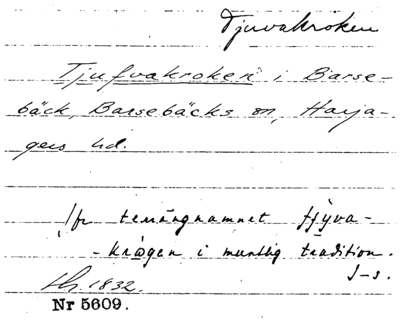 Tjuvakroken
Tjufvakroken i Barse-
bäck, Barsebäcks sn, Harja-
gers hd.
Jfr terrängnamnet
-krågen i muntlig tradition.
J-s.
1832.
Nr 5609.